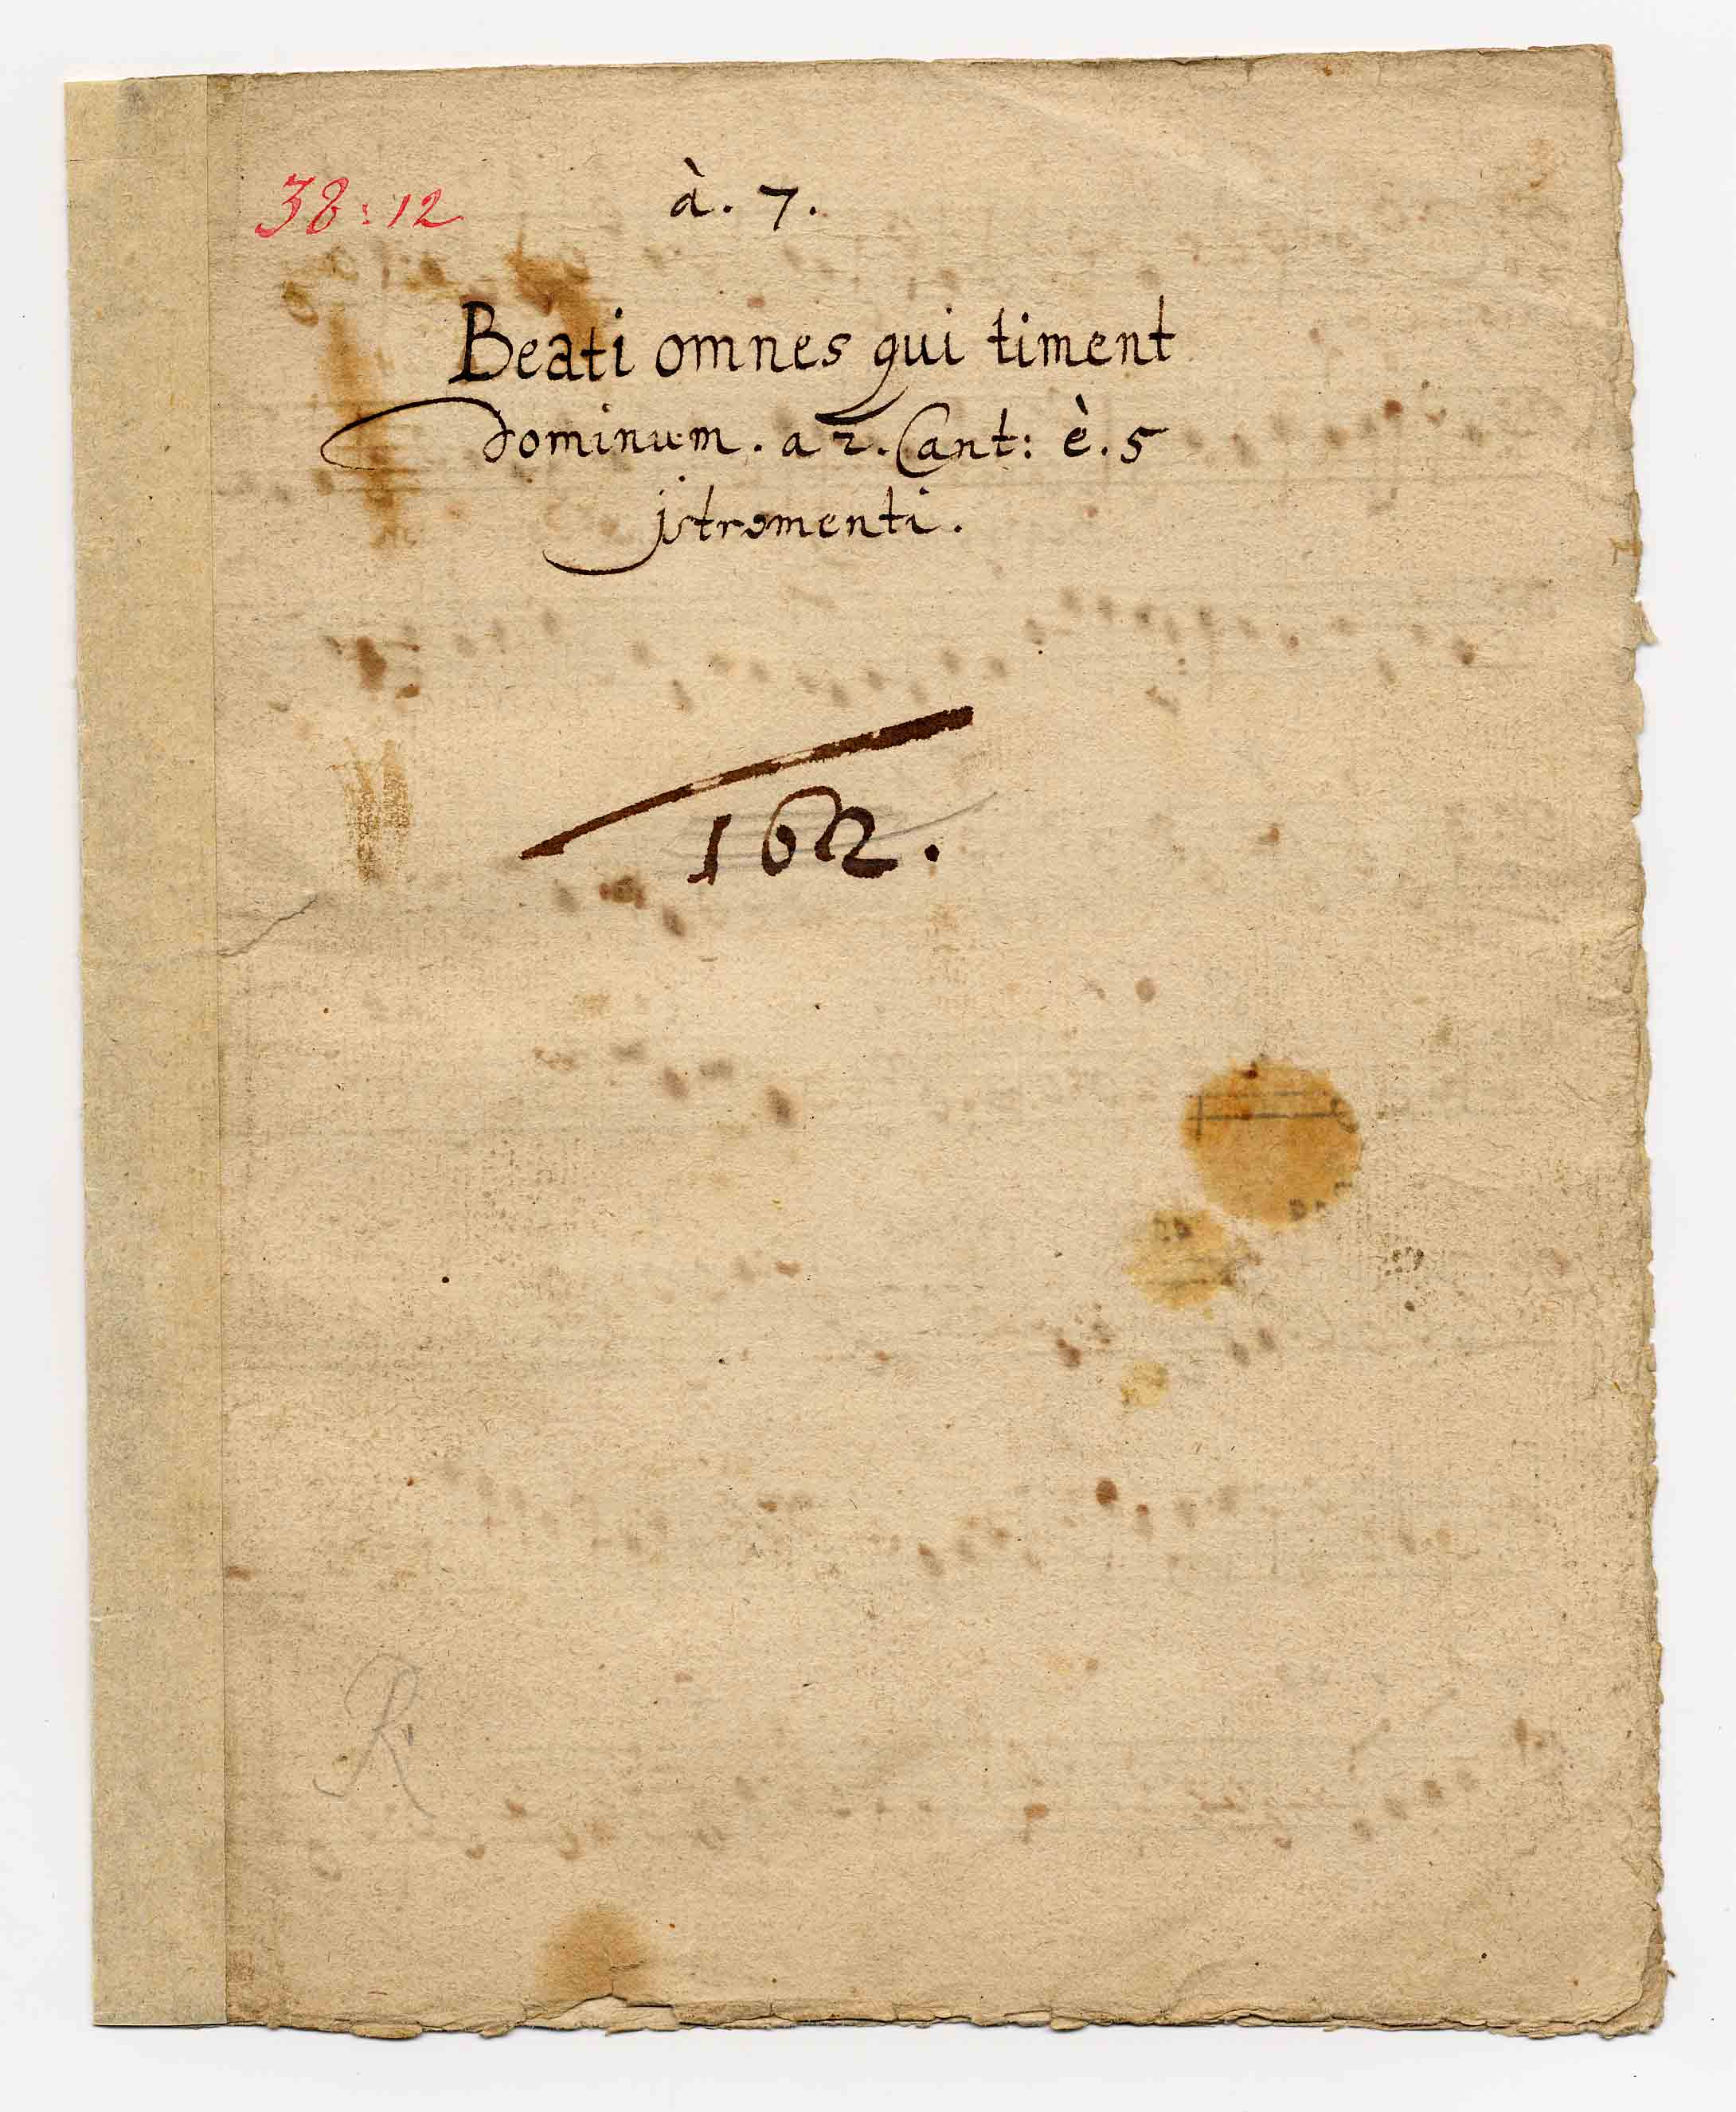 38:12
à. 7.
Beati omnes qui timent
Dominum. a 2. Cant: è. 5
jstromenti.
162.
R